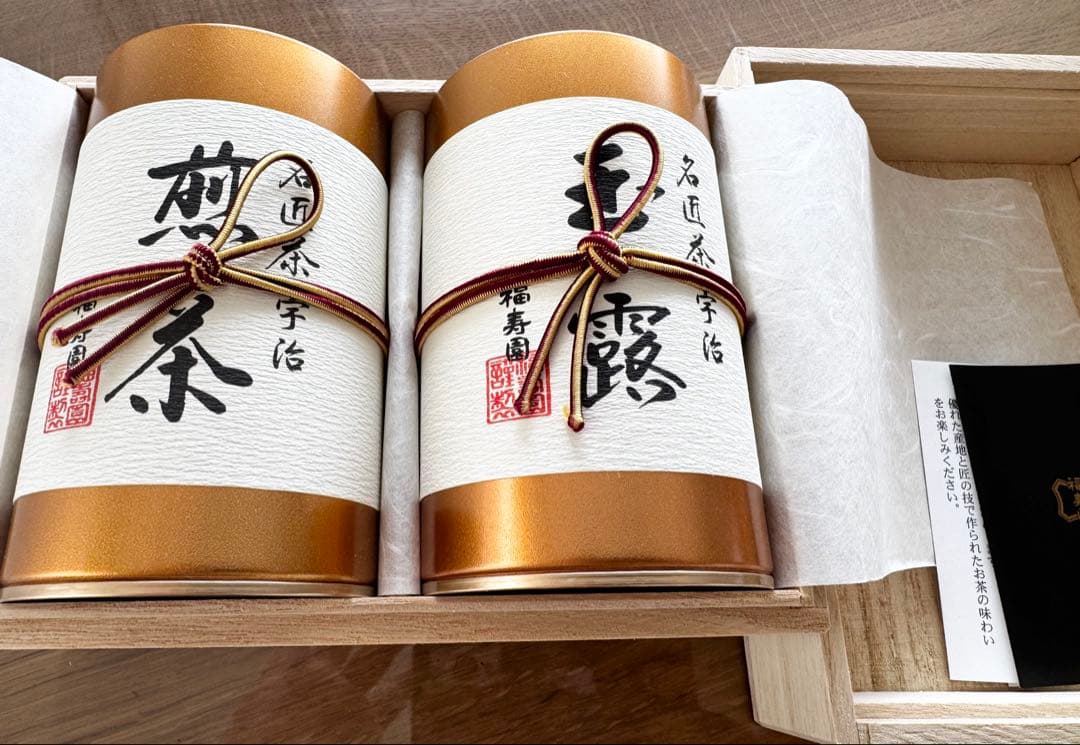 名匠茶宇治
煎茶
福寿園
福壽園
謹製
名匠茶宇治
玉露
福寿園
福壽園
謹製
優れた産地と匠の技で作られたお茶の味わい
をお楽しみください。
福